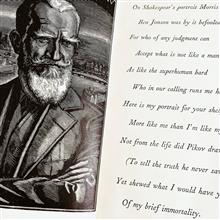 On Shakespear's portrait Morris
Ben Jonson was by it befoole
For who of any judgment can
Accept what is not like a man
As like the superhuman bard
Who in our calling runs me h
Here is my portrait for your shel
More like me than I'm like my
Not from the life did Pikov draw
(To tell the truth he never saw
Yet shewed what I would have y
Of my brief immortality.